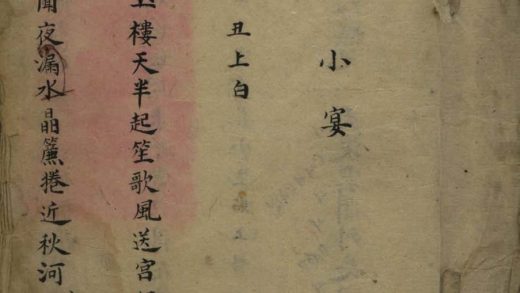 小宴
丑上白
樓天半起笙歌風送宮
聞夜漏水晶簾捲近秋河